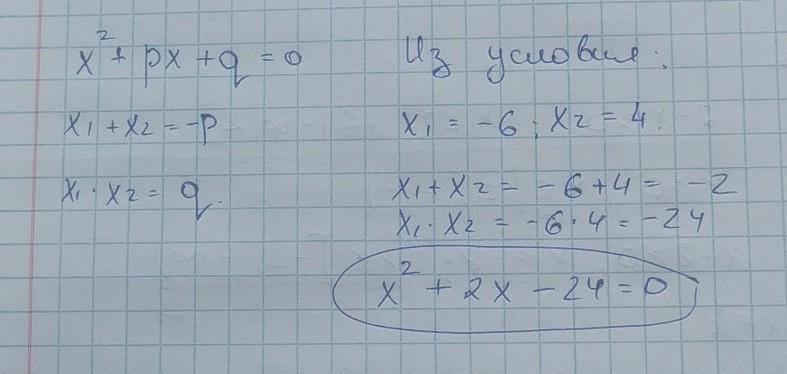 x² + px + q = 0
x₁ + x₂ = -p
x₁ · x₂ = q.
Из условия:
x₁ = -6; x₂ = 4.
x₁ + x₂ = -6+4 = -2
x₁ · x₂ = -6·4 = -24
x² + 2x - 24 = 0